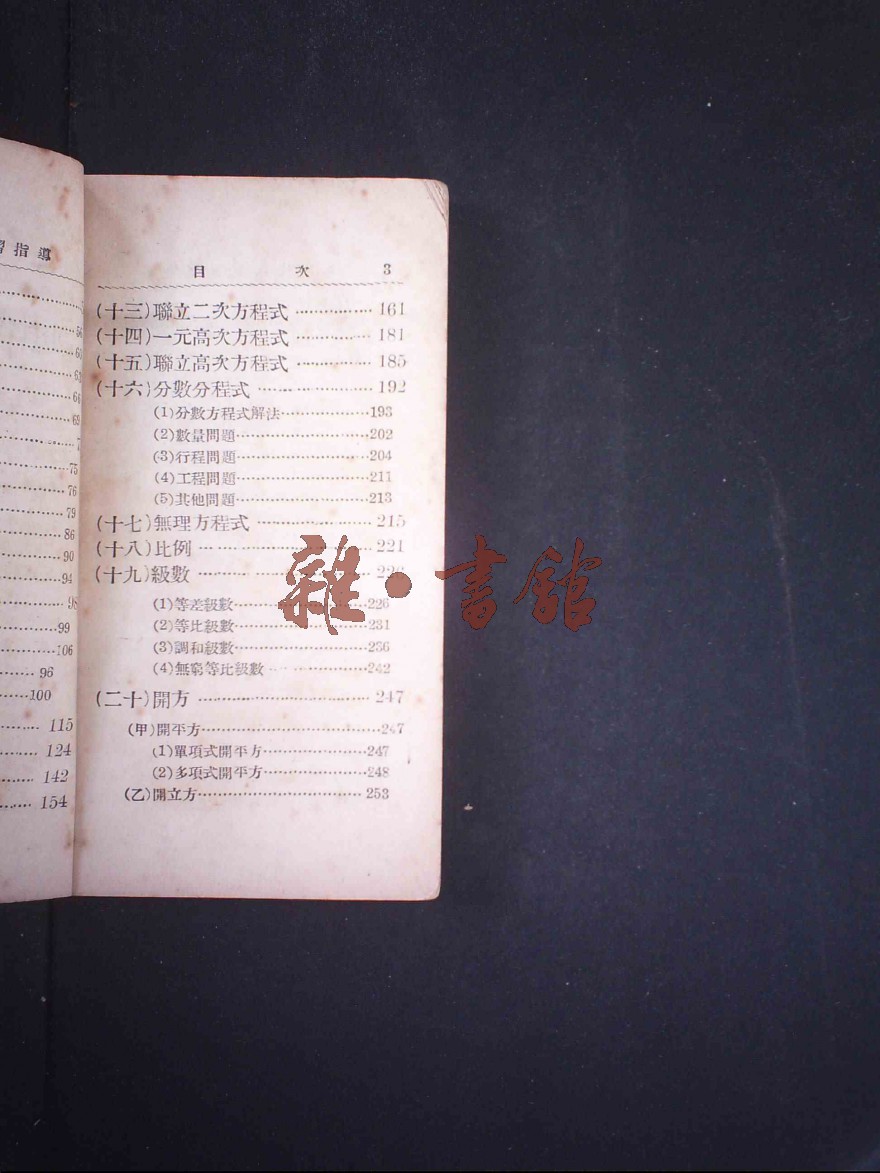 指導
56
60
63
66
69
7
75
76
79
86
90
94
98
99
106
96
100
115
124
142
154
目 次 3
(十三)聯立二次方程式 ················ 161
(十四)一元高次方程式 ················ 181
(十五)聯立高次方程式 ················ 185
(十六)分數分程式 ················ 192
(1)分數方程式解法················193
(2)數量問題················202
(3)行程問題················204
(4)工程問題················211
(5)其他問題················213
(十七)無理方程式 ················ 215
(十八)比例 ················ 221
(十九)級數 ················ 226
(1)等差級數················226
(2)等比級數················231
(3)調和級數················236
(4)無窮等比級數················242
(二十)開方 ················ 247
(甲)開平方················247
(1)單項式開平方················247
(2)多項式開平方················248
(乙)開立方················253
雜·書館